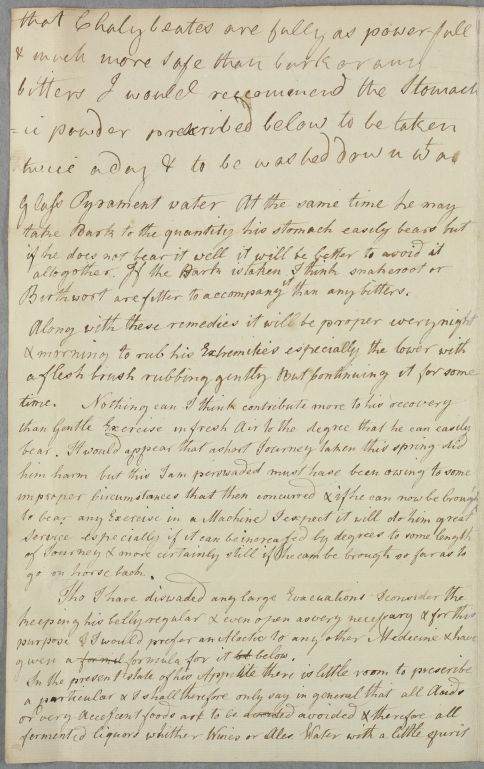 that Chalybeates are fully as powerfull
& much more safe than bark or any
bitters I would reccomend the Stomach
=ic powder prescribed below to be taken
twice a day & to be washed down wt a
glass Pyrament water At the same time he may
take Bark to the quantity his stomach easily bears but
if he does not bear it well it will be better to avoid it
altogether. If the Bark is taken I think snakeroot or
Birthwort are fitter to accompany it than any bitters.
Along with these remedies it will be proper every night
& morning to rub his Extremities especially the lower with
a flesh brush rubbing gently But continuing it for some
time. Nothing can I think contribute more to his recovery
than Gentle Exercise in fresh Air to the degree that he can easily
bear. It would appear that a short Journey taken this spring did
him harm but this I am perswaded must have been owing to some
improper Circumstances that then concurred & if he can now be brough
to bear any Exercise in a Machine I expect it will do him great
Service especially if it can be increased by degrees to some length
of Journey & more certainly still if he can be brough so far as to
go on horse back.
Tho I have diswaded any large Evacuations I consider the
keeping his belly regular & even open as very necessary & for this
purpose I would prefer an Aloetic to any other Medicine & have
given a formil formula for it bel below.
In the present state of his Appetite there is little room to prescribe
a particular & I shall therefore only say in general that all Acids
or very Acescent foods are to be avoided avoided & therefore all
fermented liquors whither Wines or Ales Water with a little spirit